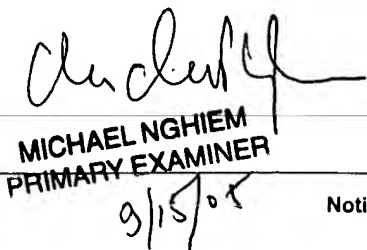 MICHAEL NGHIEM
PRIMARY EXAMINER
9/15/05
Noti